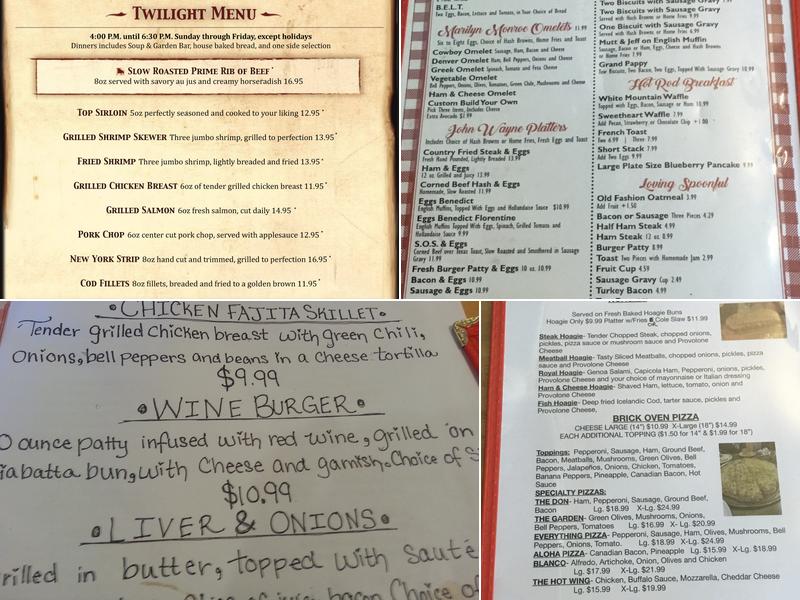 TWILIGHT MENU
4:00 P.M. until 6:30 P.M. Sunday through Friday, except holidays
Dinners includes Soup & Garden Bar, house baked bread, and one side selection
SLOW ROASTED PRIME RIB OF BEEF*
8oz served with savory au jus and creamy horseradish 16.95
TOP SIRLOIN 5oz perfectly seasoned and cooked to your liking 12.95*
GRILLED SHRIMP SKEWER Three jumbo shrimp, grilled to perfection 13.95*
FRIED SHRIMP Three jumbo shrimp, lightly breaded and fried 13.95*
GRILLED CHICKEN BREAST 6oz of tender grilled chicken breast 11.95*
GRILLED SALMON 6oz fresh salmon, cut daily 14.95*
PORK CHOP 6oz center cut pork chop, served with applesauce 12.95*
NEW YORK STRIP 8oz hand cut and trimmed, grilled to perfection 16.95*
COD FILLETS 8oz fillets, breaded and fried to a golden brown 11.95*
B.E.L.T.
Two Eggs, Bacon, Lettuce and Tomato, in Your Choice of Bread
Marilyn Monroe Omelets 11.99
Six to Eight Eggs, Choice of Hash Browns, Home Fries and Toast
Cowboy Omelet Sausage, Ham, Bacon and Cheese
Denver Omelet Ham, Bell Peppers, Onions and Cheese
Greek Omelet Spinach, Tomato and Feta Cheese
Vegetable Omelet
Bell Peppers, Onions, Olives, Tomatoes, Green Chile, Mushrooms and Cheese
Ham & Cheese Omelet
Custom Build Your Own
Pick Three Items, Includes Cheese
Extra Avocado $1.99
John Wayne Platters
Includes Choice of Hash Browns or Home Fries, Fresh Eggs and Toast
Country Fried Steak & Eggs
Fresh Hand Pounded, Lightly Breaded 13.99
Ham & Eggs
12 oz. Grilled and Juicy 13.99
Corned Beef Hash & Eggs
Homemade, Slow Roasted 11.99
Eggs Benedict
English Muffins, Topped With Eggs and Hollandaise Sauce $10.99
Eggs Benedict Florentine
English Muffins Topped With Eggs, Spinach, Grilled Tomato and
Hollandaise Sauce 9.99
S.O.S. & Eggs
Corned Beef over Texas Toast, Slow Roasted and Smothered in Sausage
Gravy 11.99
Fresh Burger Patty & Eggs 10 oz. 10.99
Bacon & Eggs 10.99
Sausage & Eggs 10.99
Two Biscuits with Sausage Gravy
Served with Hash Browns or Home Fries 9.99
One Biscuit with Sausage Gravy
Served with Hash Browns or Home Fries 6.99
Mutt & Jeff on English Muffin
Sausage, Bacon or Ham, Eggs, Cheese and Hash Browns
or Home Fries 7.99
Grand Pappy
Two Biscuits, Two Bacon, Two Eggs, Topped With Sausage Gravy 10.99
Hot Rod Breakfast
White Mountain Waffle
Topped with Eggs, Bacon, Sausage or Ham 10.99
Sweetheart Waffle 7.99
Add Pecan, Strawberry or Chocolate Chip +1.00
French Toast
Two 6.99 | Three 7.99
Short Stack 7.99
Add Two Eggs 9.99
Large Plate Size Blueberry Pancake 9.99
Loving Spoonful
Old Fashion Oatmeal 3.99
Add Fruit +1.50
Bacon or Sausage Three Pieces 4.29
Half Ham Steak 4.99
Ham Steak 12 oz. 8.99
Burger Patty 8.99
Toast Two Pieces with Homemade Jam 2.99
Fruit Cup 4.59
Sausage Gravy Cup 2.49
Turkey Bacon 4.99
•CHICKEN FAJITA SKILLET•
Tender grilled Chicken breast with green Chili,
Onions, bell peppers and beans in a Cheese tortilla
$9.99
•WINE BURGER•
ounce patty infused with red wine, grilled on
bun, with Cheese and garnish. Choice of
$10.99
•LIVER & ONIONS•
in butter, topped with
bacon Choice of
Served on Fresh Baked Hoagie Buns
Hoagie Only $9.99 Platter w/Fries & Cole Slaw $11.99
OR
Steak Hoagie- Tender Chopped Steak, chopped onions,
pickles, pizza sauce or mushroom sauce and Provolone
Cheese
Meatball Hoagie- Tasty Sliced Meatballs, chopped onions, pickles, pizza
sauce and Provolone Cheese
Royal Hoagie- Genoa Salami, Capicola Ham, Pepperoni, onions, pickles,
Provolone Cheese and your choice of mayonnaise or Italian dressing
Ham & Cheese Hoagie- Shaved Ham, lettuce, tomato, onion and
Provolone Cheese
Fish Hoagie- Deep fried Icelandic Cod, tarter sauce, pickles and
Provolone Cheese,
BRICK OVEN PIZZA
CHEESE LARGE (14") $10.99 X-Large (18") $14.99
EACH ADDITIONAL TOPPING ($1.50 for 14" & $1.99 for 18")
Toppings: Pepperoni, Sausage, Ham, Ground Beef,
Bacon, Meatballs, Mushrooms, Green Olives, Bell
Peppers, Jalapeños, Onions, Chicken, Tomatoes,
Banana Peppers, Pineapple, Canadian Bacon, Hot
Sauce
SPECIALTY PIZZAS:
THE DON- Ham, Pepperoni, Sausage, Ground Beef,
Bacon Lg. $18.99 X-Lg. $24.99
THE GARDEN- Green Olives, Mushrooms, Onions,
Bell Peppers, Tomatoes Lg. $16.99 X- Lg. $20.99
EVERYTHING PIZZA- Pepperoni, Sausage, Ham, Olives, Mushrooms, Bell
Peppers, Onions, Tomato. Lg. $18.99 X-Lg. $24.99
ALOHA PIZZA- Canadian Bacon, Pineapple Lg. $15.99 X-Lg. $18.99
BLANCO- Alfredo, Artichoke, Onion, Olives and Chicken
Lg. $17.99 X-Lg. $21.99
THE HOT WING- Chicken, Buffalo Sauce, Mozzarella, Cheddar Cheese
Lg. $15.99 X-Lg. $19.99